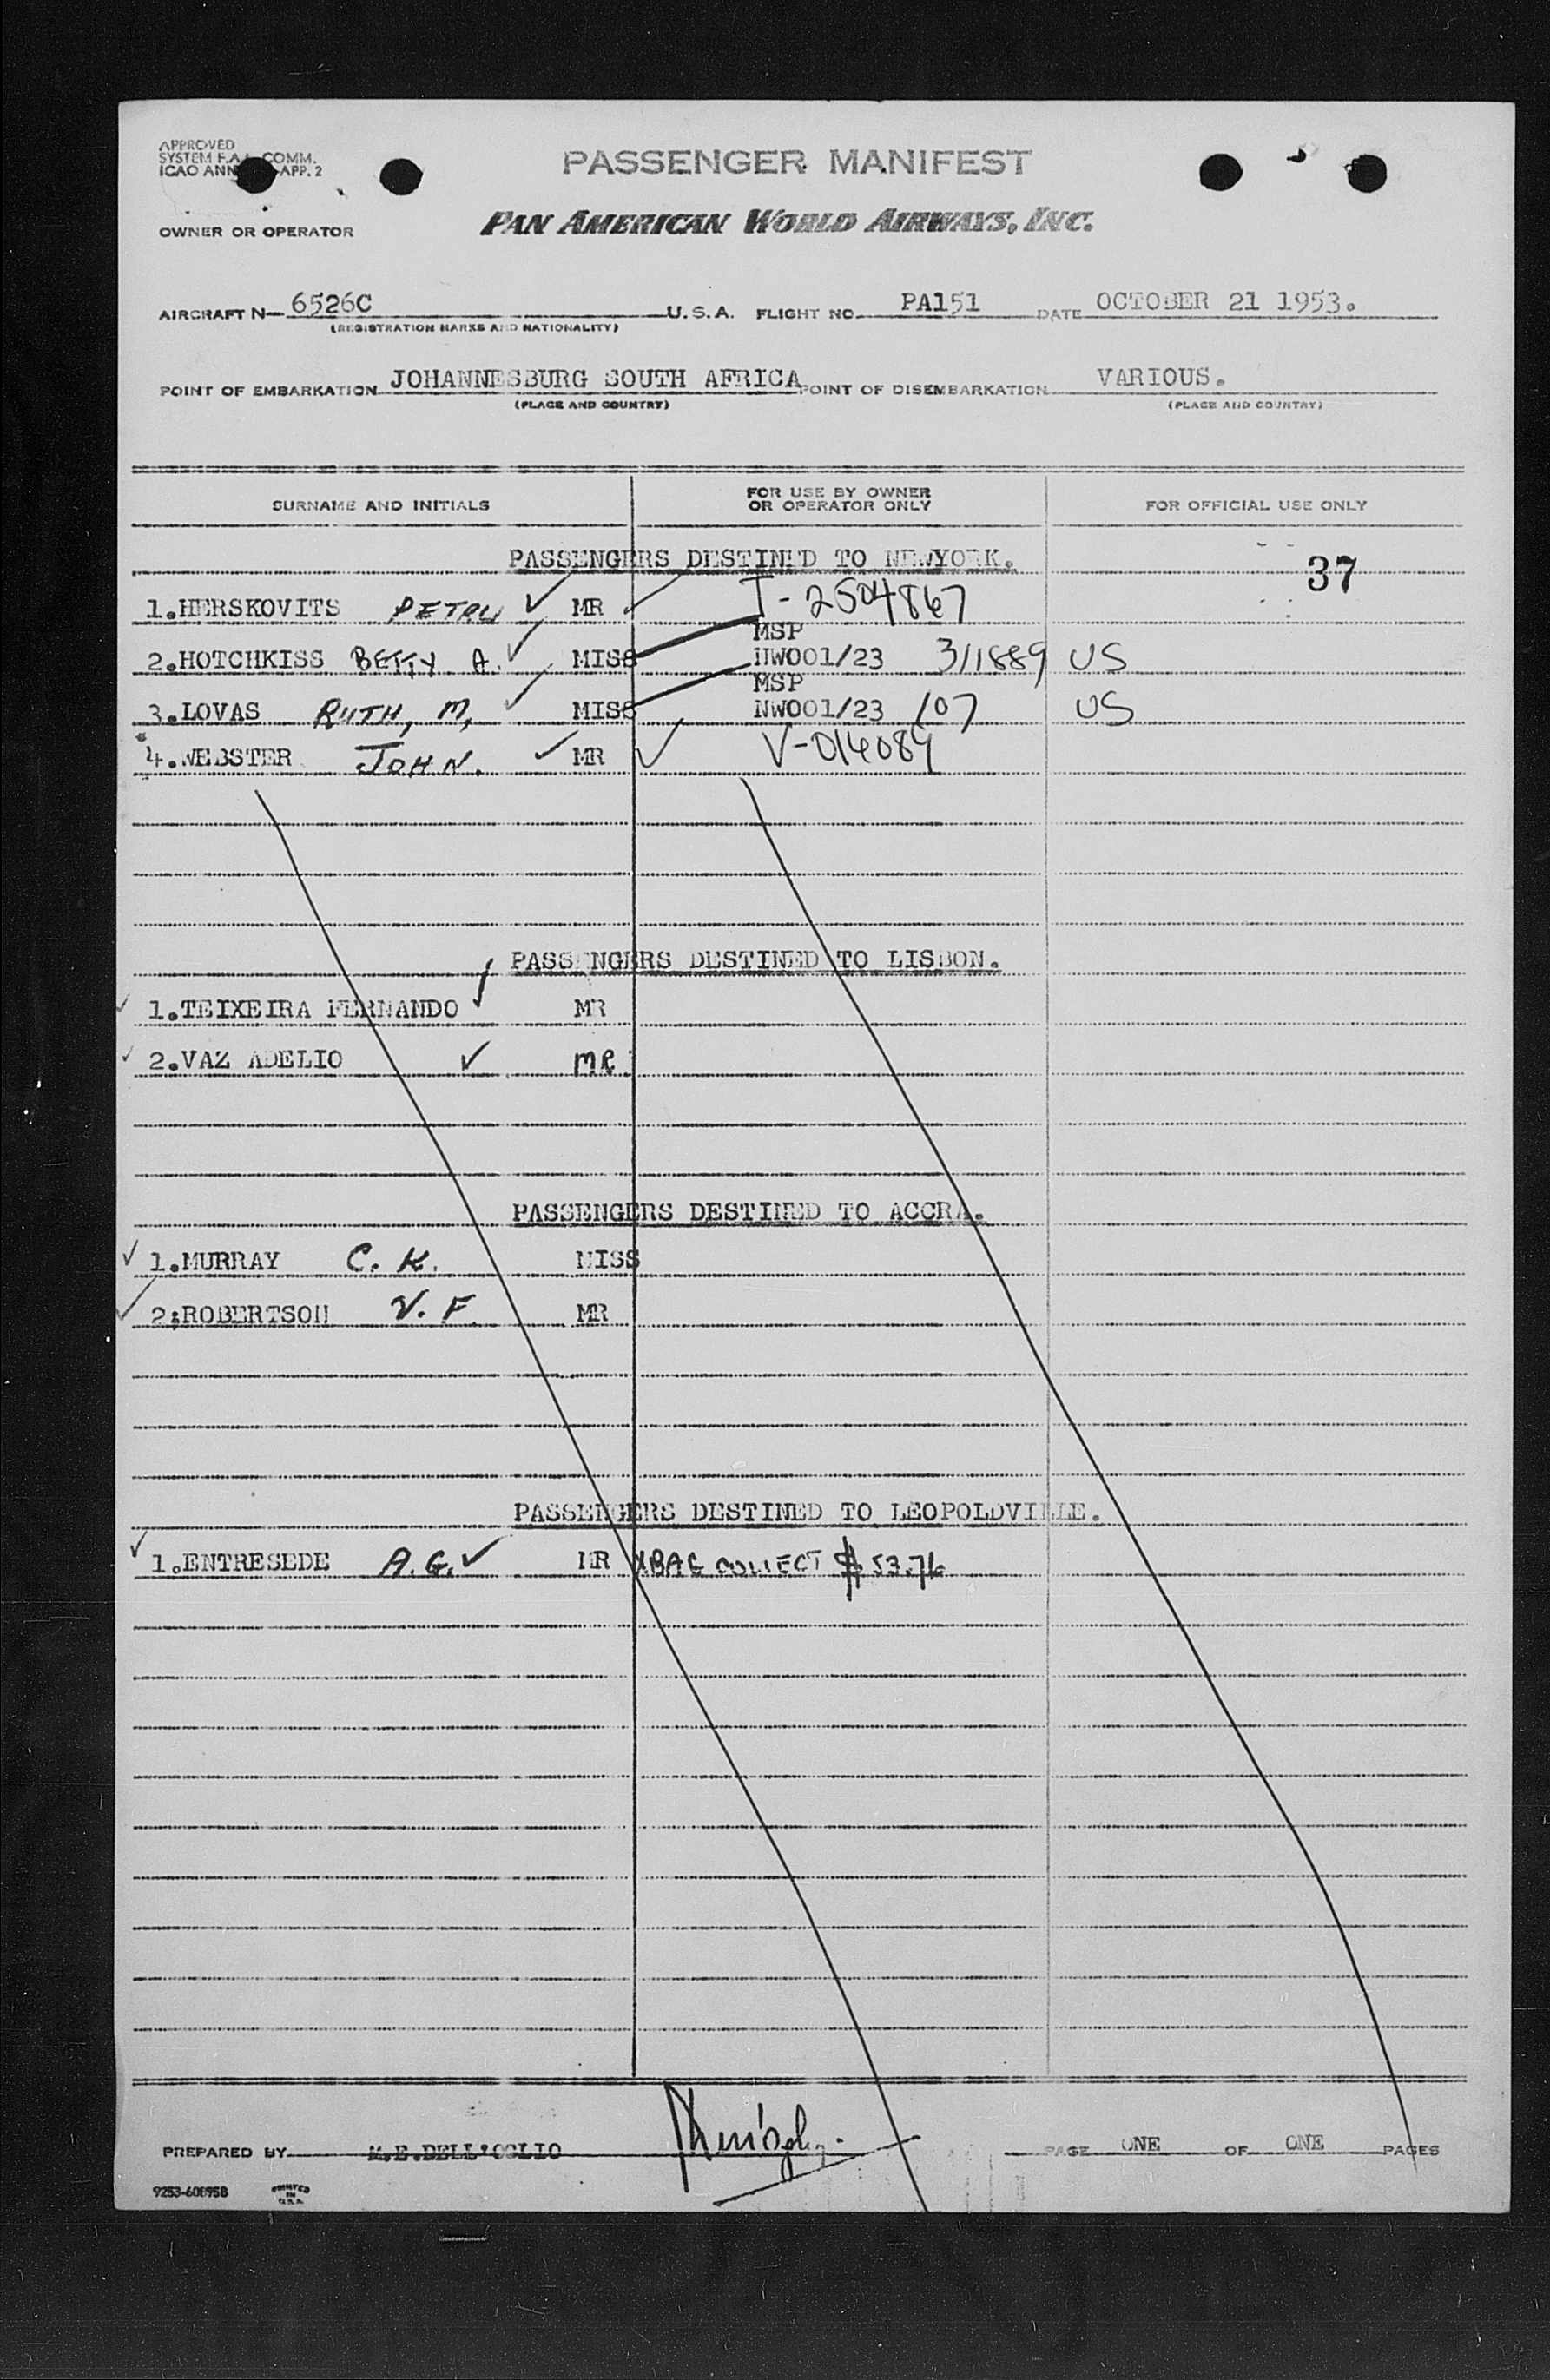 APPROVED
SYSTEM F.A.L. COMM.
ICAO ANN APP. 2
PASSENGER MANIFEST
OWNER OR OPERATOR PAN AMERICAN WORLD AIRWAYS, INC.
AIRCRAFT N- 6526C U.S.A. FLIGHT NO. PA151 DATE OCTOBER 21 1953.
(REGISTRATION MARKS AND NATIONALITY)
POINT OF EMBARKATION JOHANNESBURG SOUTH AFRICA POINT OF DISEMBARKATION VARIOUS.
(PLACE AND COUNTRY) (PLACE AND COUNTRY)
SURNAME AND INITIALS FOR USE BY OWNER OR OPERATOR ONLY FOR OFFICIAL USE ONLY
PASSENGERS DESTINED TO NEWYORK.
37
1.HERSKOVITS PETRU ✓ MR ✓ I-2504867
MSP
2.HOTCHKISS BETTY A. ✓ MISS NW001/23 311889 US
MSP
3.LOVAS RUTH, M, ✓ MISS NW001/23 107 US
4.WEBSTER JOHN. ✓ MR ✓ V-014089
PASSENGERS DESTINED TO LISBON.
✓ 1.TEIXEIRA FERNANDO ✓ MR
✓ 2.VAZ ADELIO ✓ MR.
PASSENGERS DESTINED TO ACCRA.
✓ 1.MURRAY C. K. MISS
✓ 2;ROBERTSON V. F. MR
PASSENGERS DESTINED TO LEOPOLDVILLE.
✓ 1.ENTRESEDE A.G. ✓ MR XBAG COLLECT $ 53.76
PREPARED BY M.E.DELL'OGLIO PAGE ONE OF ONE PAGES
9253-60895B PRINTED IN U.S.A.